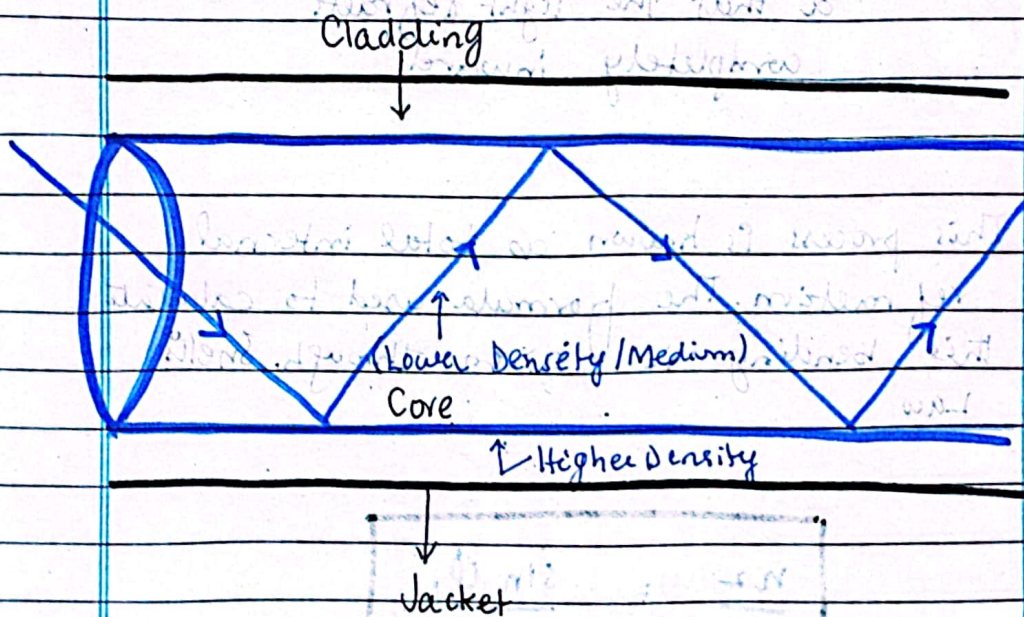 Cladding
(Lower Density/Medium)
Core
Higher Density
Jacket